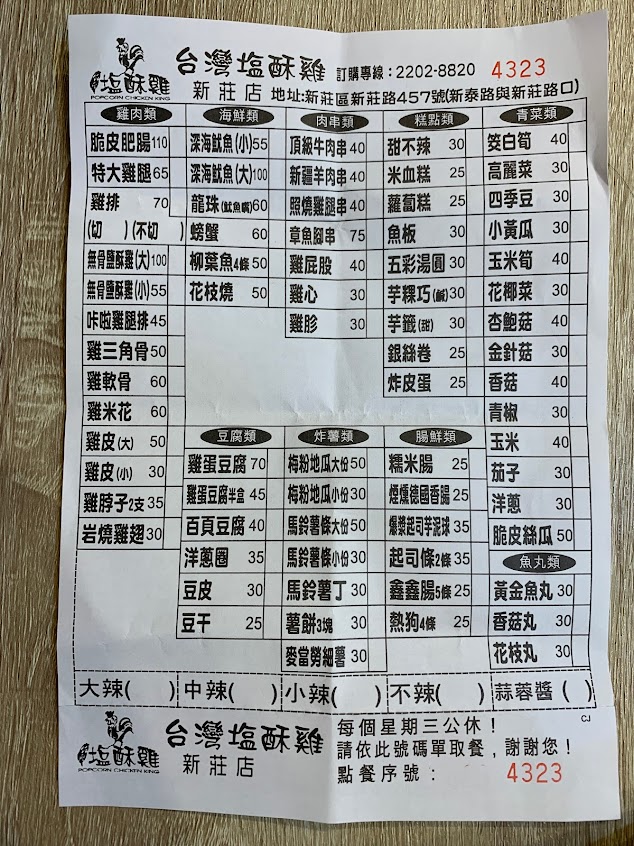 塩酥雞
POPCORN CHICKEN KING
台灣塩酥雞
訂購專線：2202-8820
4323
新莊店
地址:新莊區新莊路457號(新泰路與新莊路口)
雞肉類
脆皮肥腸 110
特大雞腿 65
雞排 70
(切 )(不切 )
無骨鹽酥雞(大) 100
無骨鹽酥雞(小) 55
咔啦雞腿排 45
雞三角骨 50
雞軟骨 60
雞米花 60
雞皮(大) 50
雞皮(小) 30
雞脖子2支 35
岩燒雞翅 30
海鮮類
深海魷魚(小) 55
深海魷魚(大) 100
龍珠(魷魚嘴) 60
螃蟹 60
柳葉魚4條 50
花枝燒 50
肉串類
頂級牛肉串 40
新疆羊肉串 40
照燒雞腿串 40
章魚腳串 75
雞屁股 40
雞心 30
雞胗 30
糕點類
甜不辣 30
米血糕 25
蘿蔔糕 25
魚板 30
五彩湯圓 30
芋粿巧(鹹) 30
芋籤(甜) 30
銀絲卷 25
炸皮蛋 25
青菜類
筊白筍 40
高麗菜 30
四季豆 30
小黃瓜 30
玉米筍 40
花椰菜 30
杏鮑菇 40
金針菇 30
香菇 40
青椒 30
玉米 40
茄子 30
洋蔥 30
脆皮絲瓜 50
豆腐類
雞蛋豆腐 70
雞蛋豆腐半盒 45
百頁豆腐 40
洋蔥圈 35
豆皮 30
豆干 25
炸薯類
梅粉地瓜大份 50
梅粉地瓜小份 30
馬鈴薯條大份 50
馬鈴薯條小份 30
馬鈴薯丁 30
薯餅3塊 30
麥當勞細薯 30
腸鮮類
糯米腸 25
煙燻德國香腸 25
爆漿起司芋泥球 35
起司條2條 35
鑫鑫腸5條 25
熱狗4條 25
魚丸類
黃金魚丸 30
香菇丸 30
花枝丸 30
大辣( ) 中辣( ) 小辣( ) 不辣( ) 蒜蓉醬( )
塩酥雞
POPCORN CHICKEN KING
台灣塩酥雞
新莊店
每個星期三公休！
CJ
請依此號碼單取餐，謝謝您！
點餐序號： 4323